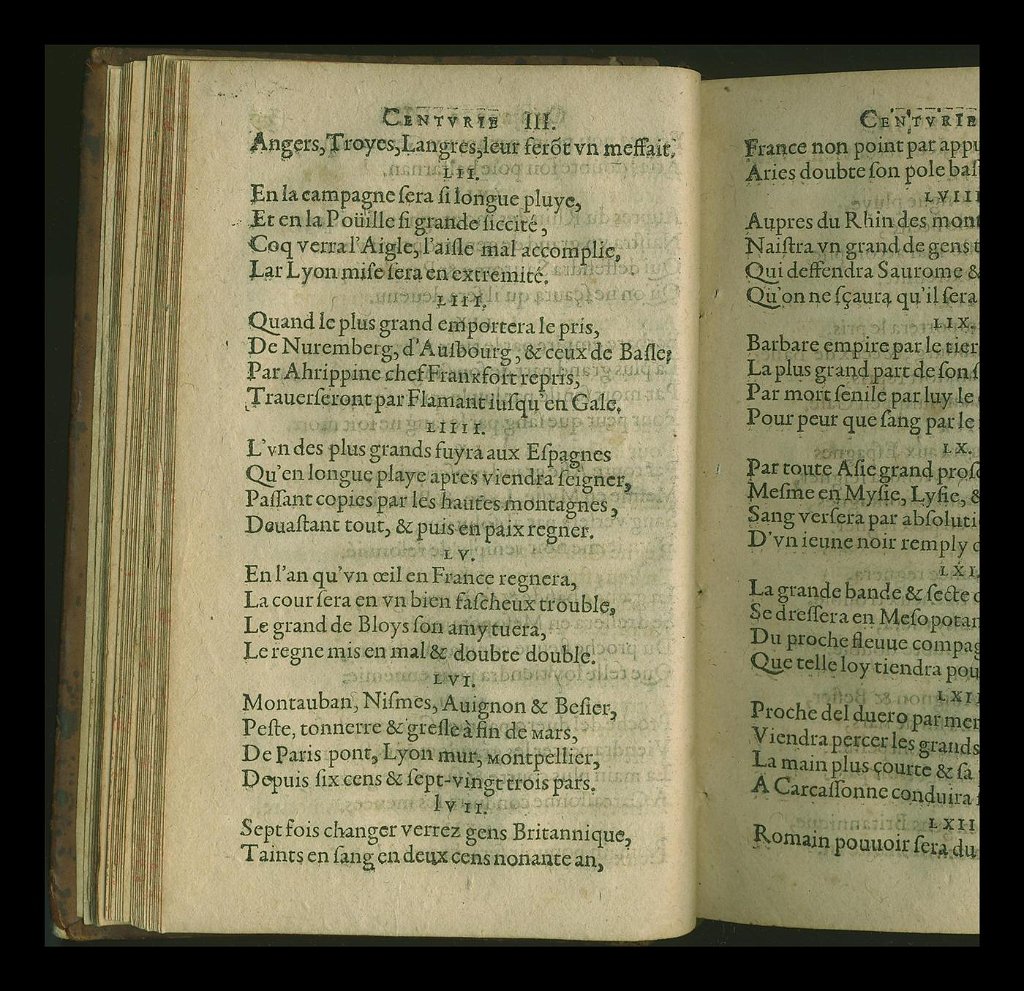 CENTVRIE III.
Angers, Troyes, Langres, leur ferõt vn meffait.
LII.
En la campagne ſera ſi longue pluye,
Et en la Poüille ſi grande ſiccité,
Coq verra l'Aigle, l'aiſle mal accomplie,
Lar Lyon miſe ſera en extremité.
LIII.
Quand le plus grand emportera le pris,
De Nuremberg, d'Auſbourg, & ceux de Baſle,
Par Ahrippine chef Franxfort repris,
Trauerſeront par Flamant iuſqu'en Gale.
LIIII.
L'vn des plus grands fuyra aux Eſpagnes
Qu'en longue playe apres viendra ſeigner,
Paſſant copies par les hautes montagnes,
Deuaſtant tout, & puis en paix regner.
LV.
En l'an qu'vn œil en France regnera,
La cour ſera en vn bien faſcheux trouble,
Le grand de Bloys ſon amy tuera,
Le regne mis en mal & doubte double.
LVI.
Montauban, Niſmes, Auignon & Beſier,
Peſte, tonnerre & greſle à fin de Mars,
De Paris pont, Lyon mur, Montpellier,
Depuis ſix cens & ſept-vingt trois pars.
lvII.
Sept fois changer verrez gens Britannique,
Taints en ſang en deux cens nonante an,
CENTVRIE
France non point par appu
Aries doubte ſon pole baſ
LVIII
Aupres du Rhin des mont
Naiſtra vn grand de gens t
Qui deffendra Saurome &
Qu'on ne ſçaura qu'il ſera
LIX.
Barbare empire par le tier
La plus grand part de ſon ſ
Par mort ſenile par luy le
Pour peur que ſang par le
LX.
Par toute Aſie grand proſc
Meſme en Myſie, Lyſie, &
Sang verſera par abſoluti
D'vn ieune noir remply d
LXI.
La grande bande & ſecte c
Se dreſſera en Meſopotar
Du proche fleuue compag
Que telle loy tiendra pou
LXII
Proche del duero par mer
Viendra percer les grands
La main plus courte & ſa
A Carcaſſonne conduira
LXII
Romain pouuoir ſera du